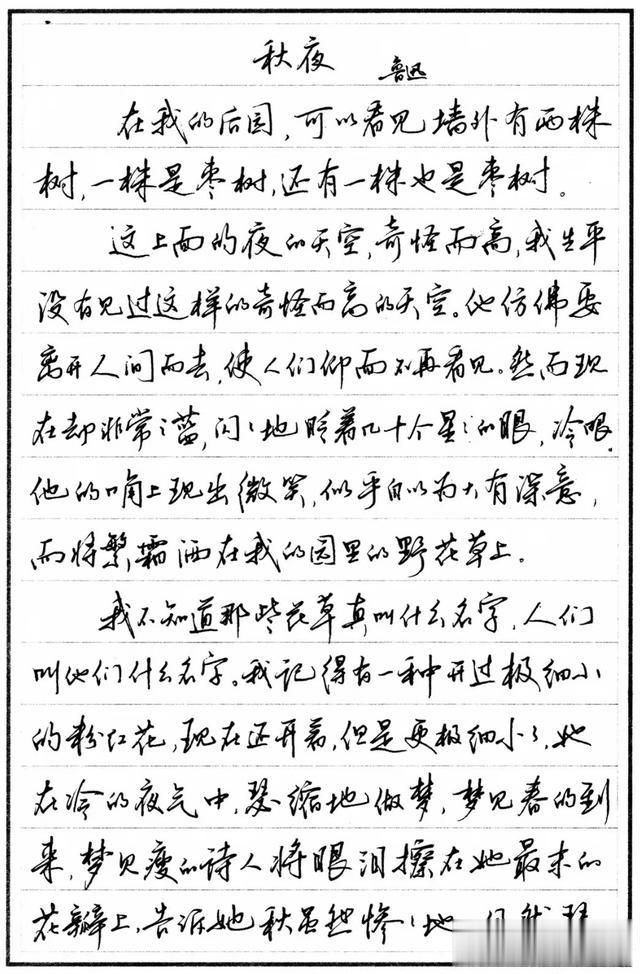 秋夜 鲁迅
在我的后园，可以看见墙外有两株
树，一株是枣树，还有一株也是枣树。
这上面的夜的天空，奇怪而高，我生平
没有见过这样的奇怪而高的天空。他仿佛要
离开人间而去，使人们仰面不再看见。然而现
在却非常之蓝，闪〻地眨着几十个星〻的眼，冷眼。
他的嘴上现出微笑，似乎自以为大有深意，
而将繁霜洒在我的园里的野花草上。
我不知道那些花草真叫什么名字，人们
叫他们什么名字。我记得有一种开过极细小
的粉红花，现在还开着，但是更极细小了，她
在冷的夜气中，瑟缩地做梦，梦见春的到
来，梦见瘦的诗人将眼泪擦在她最末的
花瓣上，告诉她秋虽然惨〻地